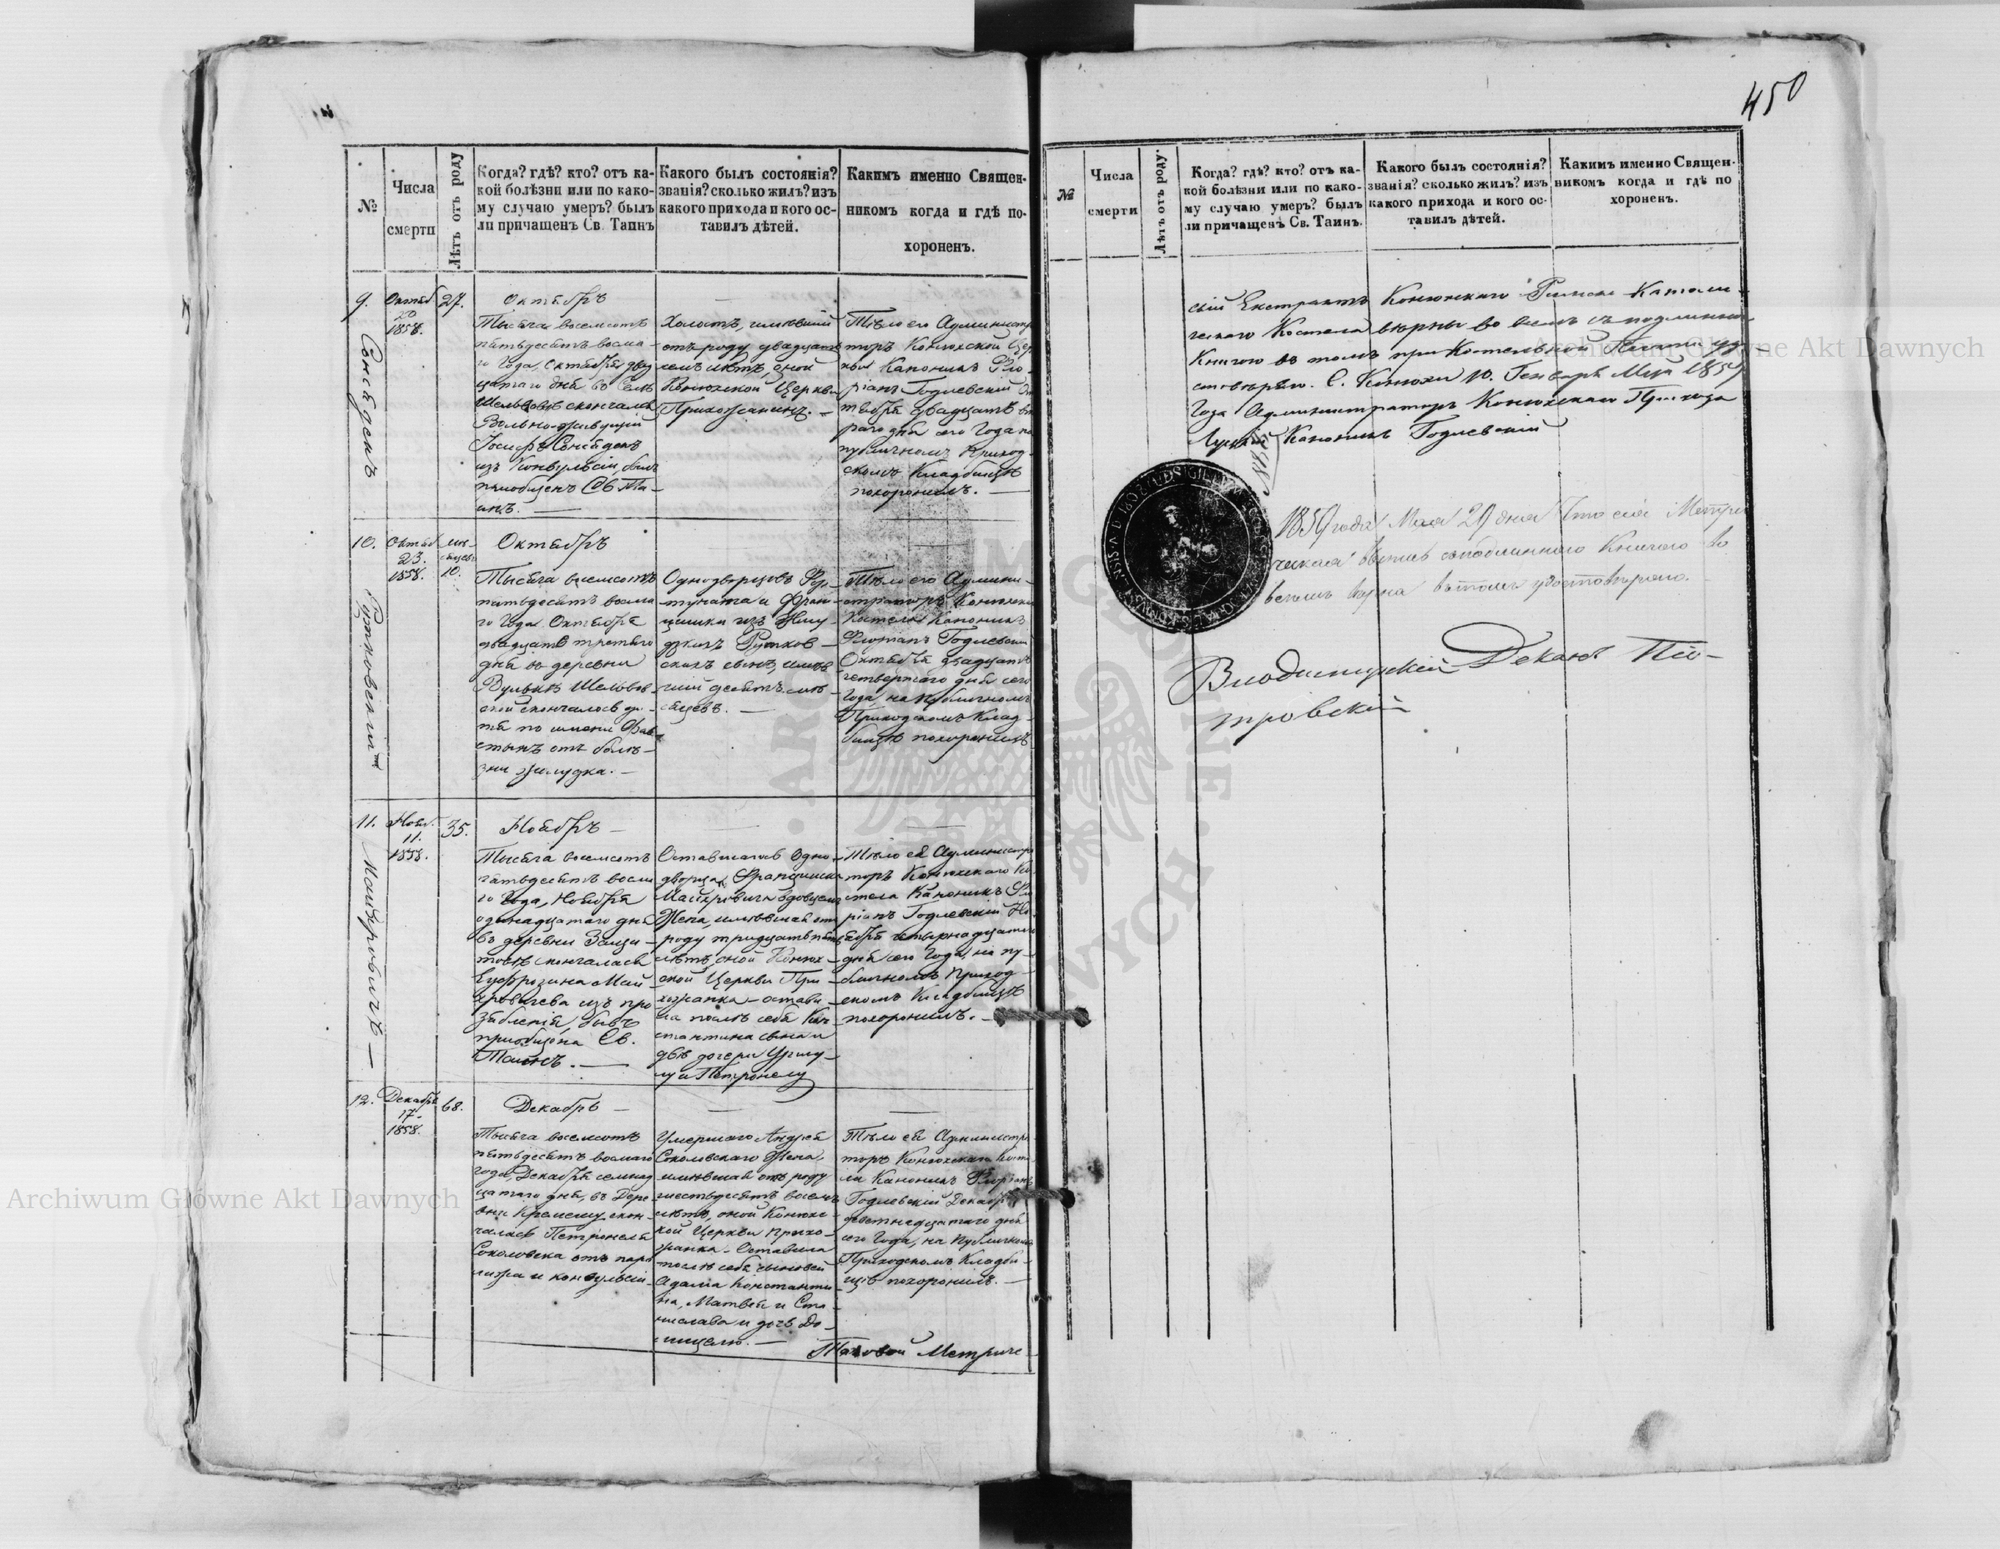 450
№
Числа
смерти
Лѣтъ отъ роду
Когда? гдѣ? кто? отъ ка-
кой болѣзни или по како-
му случаю умеръ? былъ
ли причащенъ Св. Таинъ
Какого былъ состоянія?
званія? сколько жилъ? изъ
какого прихода и кого ос-
тавилъ дѣтей.
Какимъ именно Священ-
никомъ когда и гдѣ по-
хороненъ.
9.
Октяб
20
1858.
27.
Октябрь
Тысяча восемсотъ
пятьдесятъ восма-
го Года, Октября два
цатаго дня въ Селѣ
Шельвовѣ скончался
Вольно-живущій
Іосифъ
изъ Конвульсіи, былъ
пріобщенъ Св. Та-
инъ.
Холостъ, имѣвшій
отъ роду двадцать
семь лѣтъ, оной
Конюхской Церкви
Прихожанинъ.
Тѣло его Админист
торъ Конюхской Цер
кви Каноникъ Фло-
ріанъ Годлевскій Ок
тября двадцать вто
раго дня сего Года на
публичномъ Приход-
скомъ Кладбищѣ
похоронилъ.
10.
Октяб
23.
1858.
мѣ-
сяцевъ
10.
Рутковскій
Октябрь
Тысяча восемсотъ
пятьдесятъ восма
го Года Октября
двадцать третьяго
дня въ деревни
Вулькѣ Шельвов
ской скончалось ди-
тя по имени Фав
стынъ отъ болѣ-
зни желудка.
Однодворцовъ Фор-
туната и Фран-
цишки изъ
Рутков-
скихъ сынъ, имѣв
шій десять мѣ-
сяцевъ.
Тѣло его Админи-
страторъ Конюхска
Костела Каноникъ
Флоріанъ Годлевскій
Октября двадцать
четвертаго дня сего
Года, на публичномъ
Приходскомъ Клад-
бищѣ похоронилъ
11.
Нояб.
11.
1858.
35.
Майхровичъ
Ноябрь
Тысяча восемсотъ
пятьдесятъ восма
го Года, Ноября
одинадцатаго дня
въ деревни
скончалася
Еуфрозина Май
хровичева изъ про
зябленія, бывъ
пріобщена Св.
Таинъ.
Оставшагося Одно-
дворца Францишка
Майхровича вдовцемъ
Жена, имѣвшая отъ
роду тридцать пять
лѣтъ, оной Конюх-
ской Церкви При-
хожанка - остави-
ла послѣ себя Кон-
стантина сына и
двѣ дочери Уршу-
лу и Петронелу
Тѣло ея Администра
торъ Конюхскаго Ко
стела Каноникъ Фло
ріанъ Годлевскій Но
ября четырнадцатаго
дня сего Года, на пу-
бличномъ Приход-
скомъ Кладбищѣ
похоронилъ.
12.
Декабрь
17.
1858.
68.
Декабрь
Тысяча восемсотъ
пятьдесятъ восмаго
года, Декабря семнад
цатаго дня, въ Дере
вни скон-
чалась Петронеля
Соколовска отъ пара
лижа и конвульсіи
Умершаго Андрея
Соколовскаго Жена,
имѣвшая отъ роду
шестьдесятъ восемь
лѣтъ, оной Конюхс-
кой Церкви Прихо-
жанка. Оставила
послѣ себя сыновей
Адама Константи
на, Матвея и Ста-
нислава и дочь До-
мицелю.
Тѣло ея Администра
торъ Конюхскаго Косте
ла Каноникъ Флоріанъ
Годлевскій Декабря
девятнадцатаго дня
сего Года, на Публичномъ
Приходскомъ Кладби-
щѣ похоронилъ.
Таковой Метриче
№
Числа
смерти
Лѣтъ отъ роду.
Когда? гдѣ? кто? отъ ка-
кой болѣзни или по како-
му случаю умеръ? былъ
ли причащенъ Св. Таинъ.
Какого былъ состоянія?
званія? сколько жилъ? изъ
какого прихода и кого ос-
тавилъ дѣтей.
Какимъ именно Священ-
никомъ когда и гдѣ по
хороненъ.
скій Екстрактъ Конюхскаго Римско Католи-
ческаго Костела вѣрны во всемъ съ подлинною
Книгою въ томъ при Костельной Печати удо-
стовѣряю. С. Конюхи 10. Генваря М-ца 1859
Года Администраторъ Конюхскаго Прихода
Луцкій Каноникъ Годлевскій
1859 года Мая 29 дня Что сія Метри
ческая выпись съ подлинною Книгою во
всемъ вѣрна въ томъ удостовѣряю.
Владимірскій Деканъ Піо-
тровскій
Archiwum Główne Akt Dawnych
Archiwum Główne Akt Dawnych